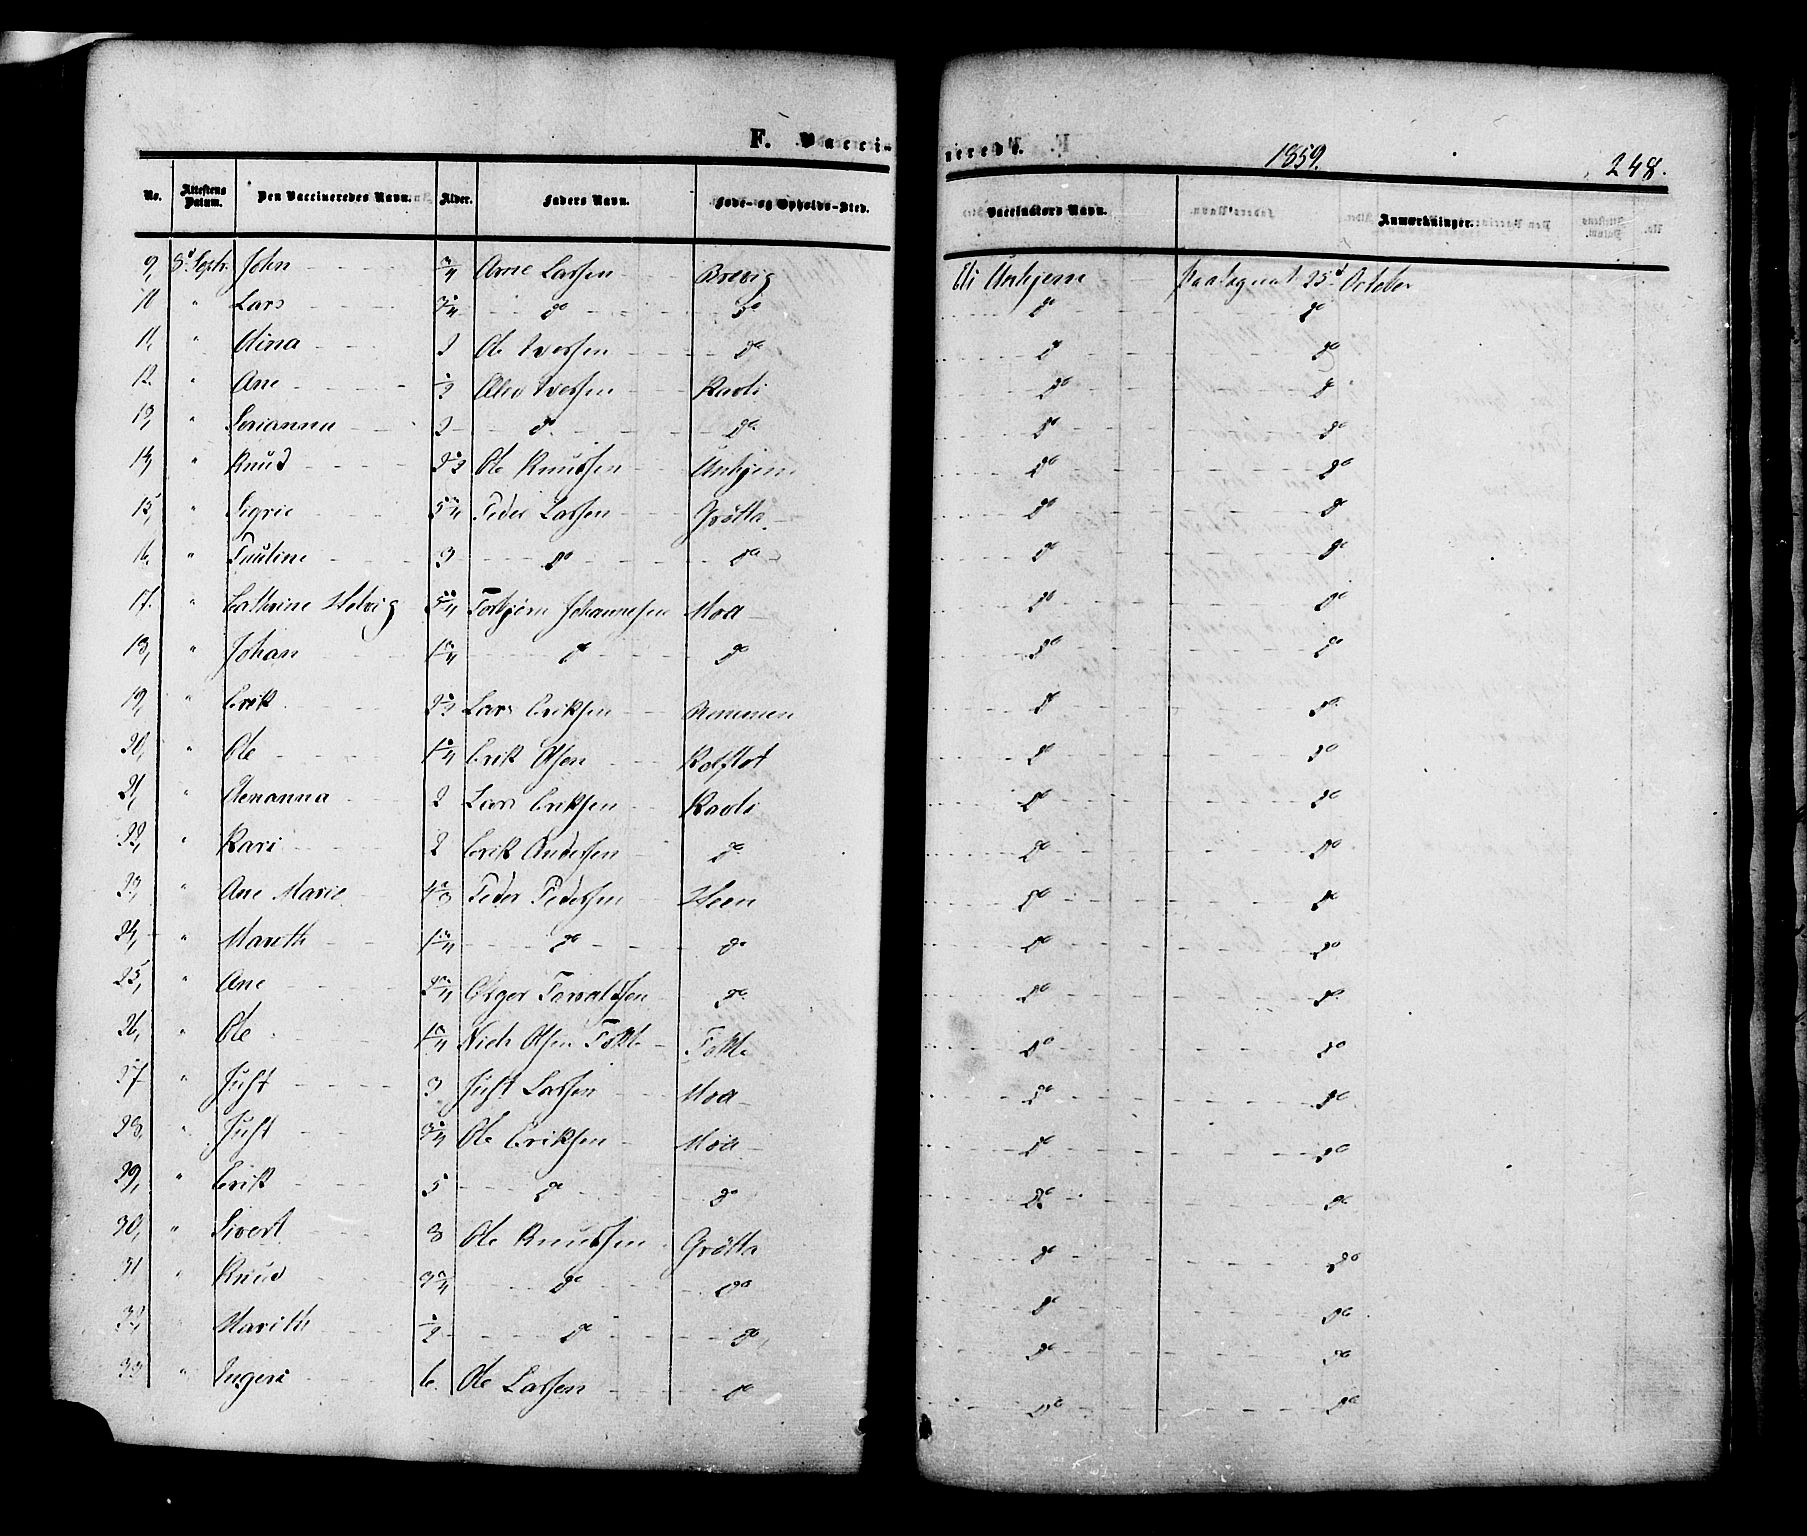 F. Vaccinerede.
1859.
248.
No. Attestens Datum. Den Vaccineredes Navn. Alder. Faders Navn. Føde- og Opholds-Sted. Vaccinators Navn. Anmærkninger.
9, 8d Septr John 3/4 Arne Larsen Brevig Eli Unhjem 25d October
10 " Lars 3 3/4 do do do do
11, " Olina 2 Ole Iversen do do do
12. " Ane 1/2 Iversen Ravli do do
13, " Serianna 2 do do do do
14, " Knud 2 1/2 Ole Knudsen Unhjem do do
15, " Sigrie 5 3/4 Peder Larsen Grötta do do
16. " Pauline 3 do do do do
17. " Cathrine Helvig 5 3/4 Torbjörn Johannesen Moa do do
18, " Johan 1 3/4 do do do do
19, " Erik 2 1/2 Lars Eriksen do do
20, " Ole 1 1/4 Erik Olsen do do
21, " Olenanna 2 Lars Eriksen Ravli do do
22, " Kari 2 Erik Andersen do do do
23, " Ane Marie Peder Pedersen Heen do do
24, " Marith 1 3/4 do do do do
25, " Ane 2 3/4 do do do
26, " Ole 1 3/4 Olsen Fokle Fokle do do
27 " Just 3 Just Larsen Moa do do
28, " Just 3 1/4 Ole Eriksen Moa do do
29, " Erik 5 do do do do
30, " Sivert 8 Ole Knudsen Grötta do do
31 " Knud 3 3/4 do do do do
32, " Marith 1/2 do do do do
33 " Ingeri 6. Ole Larsen do do do